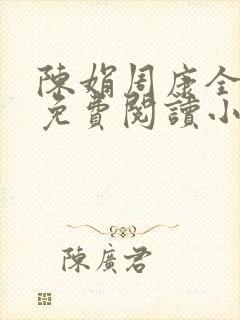 陳娟周康全
免費閱讀小
陳廣君